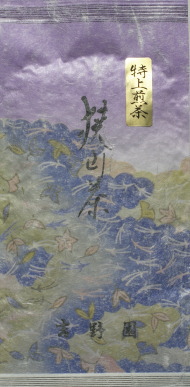 特上煎茶
狭山茶
野園